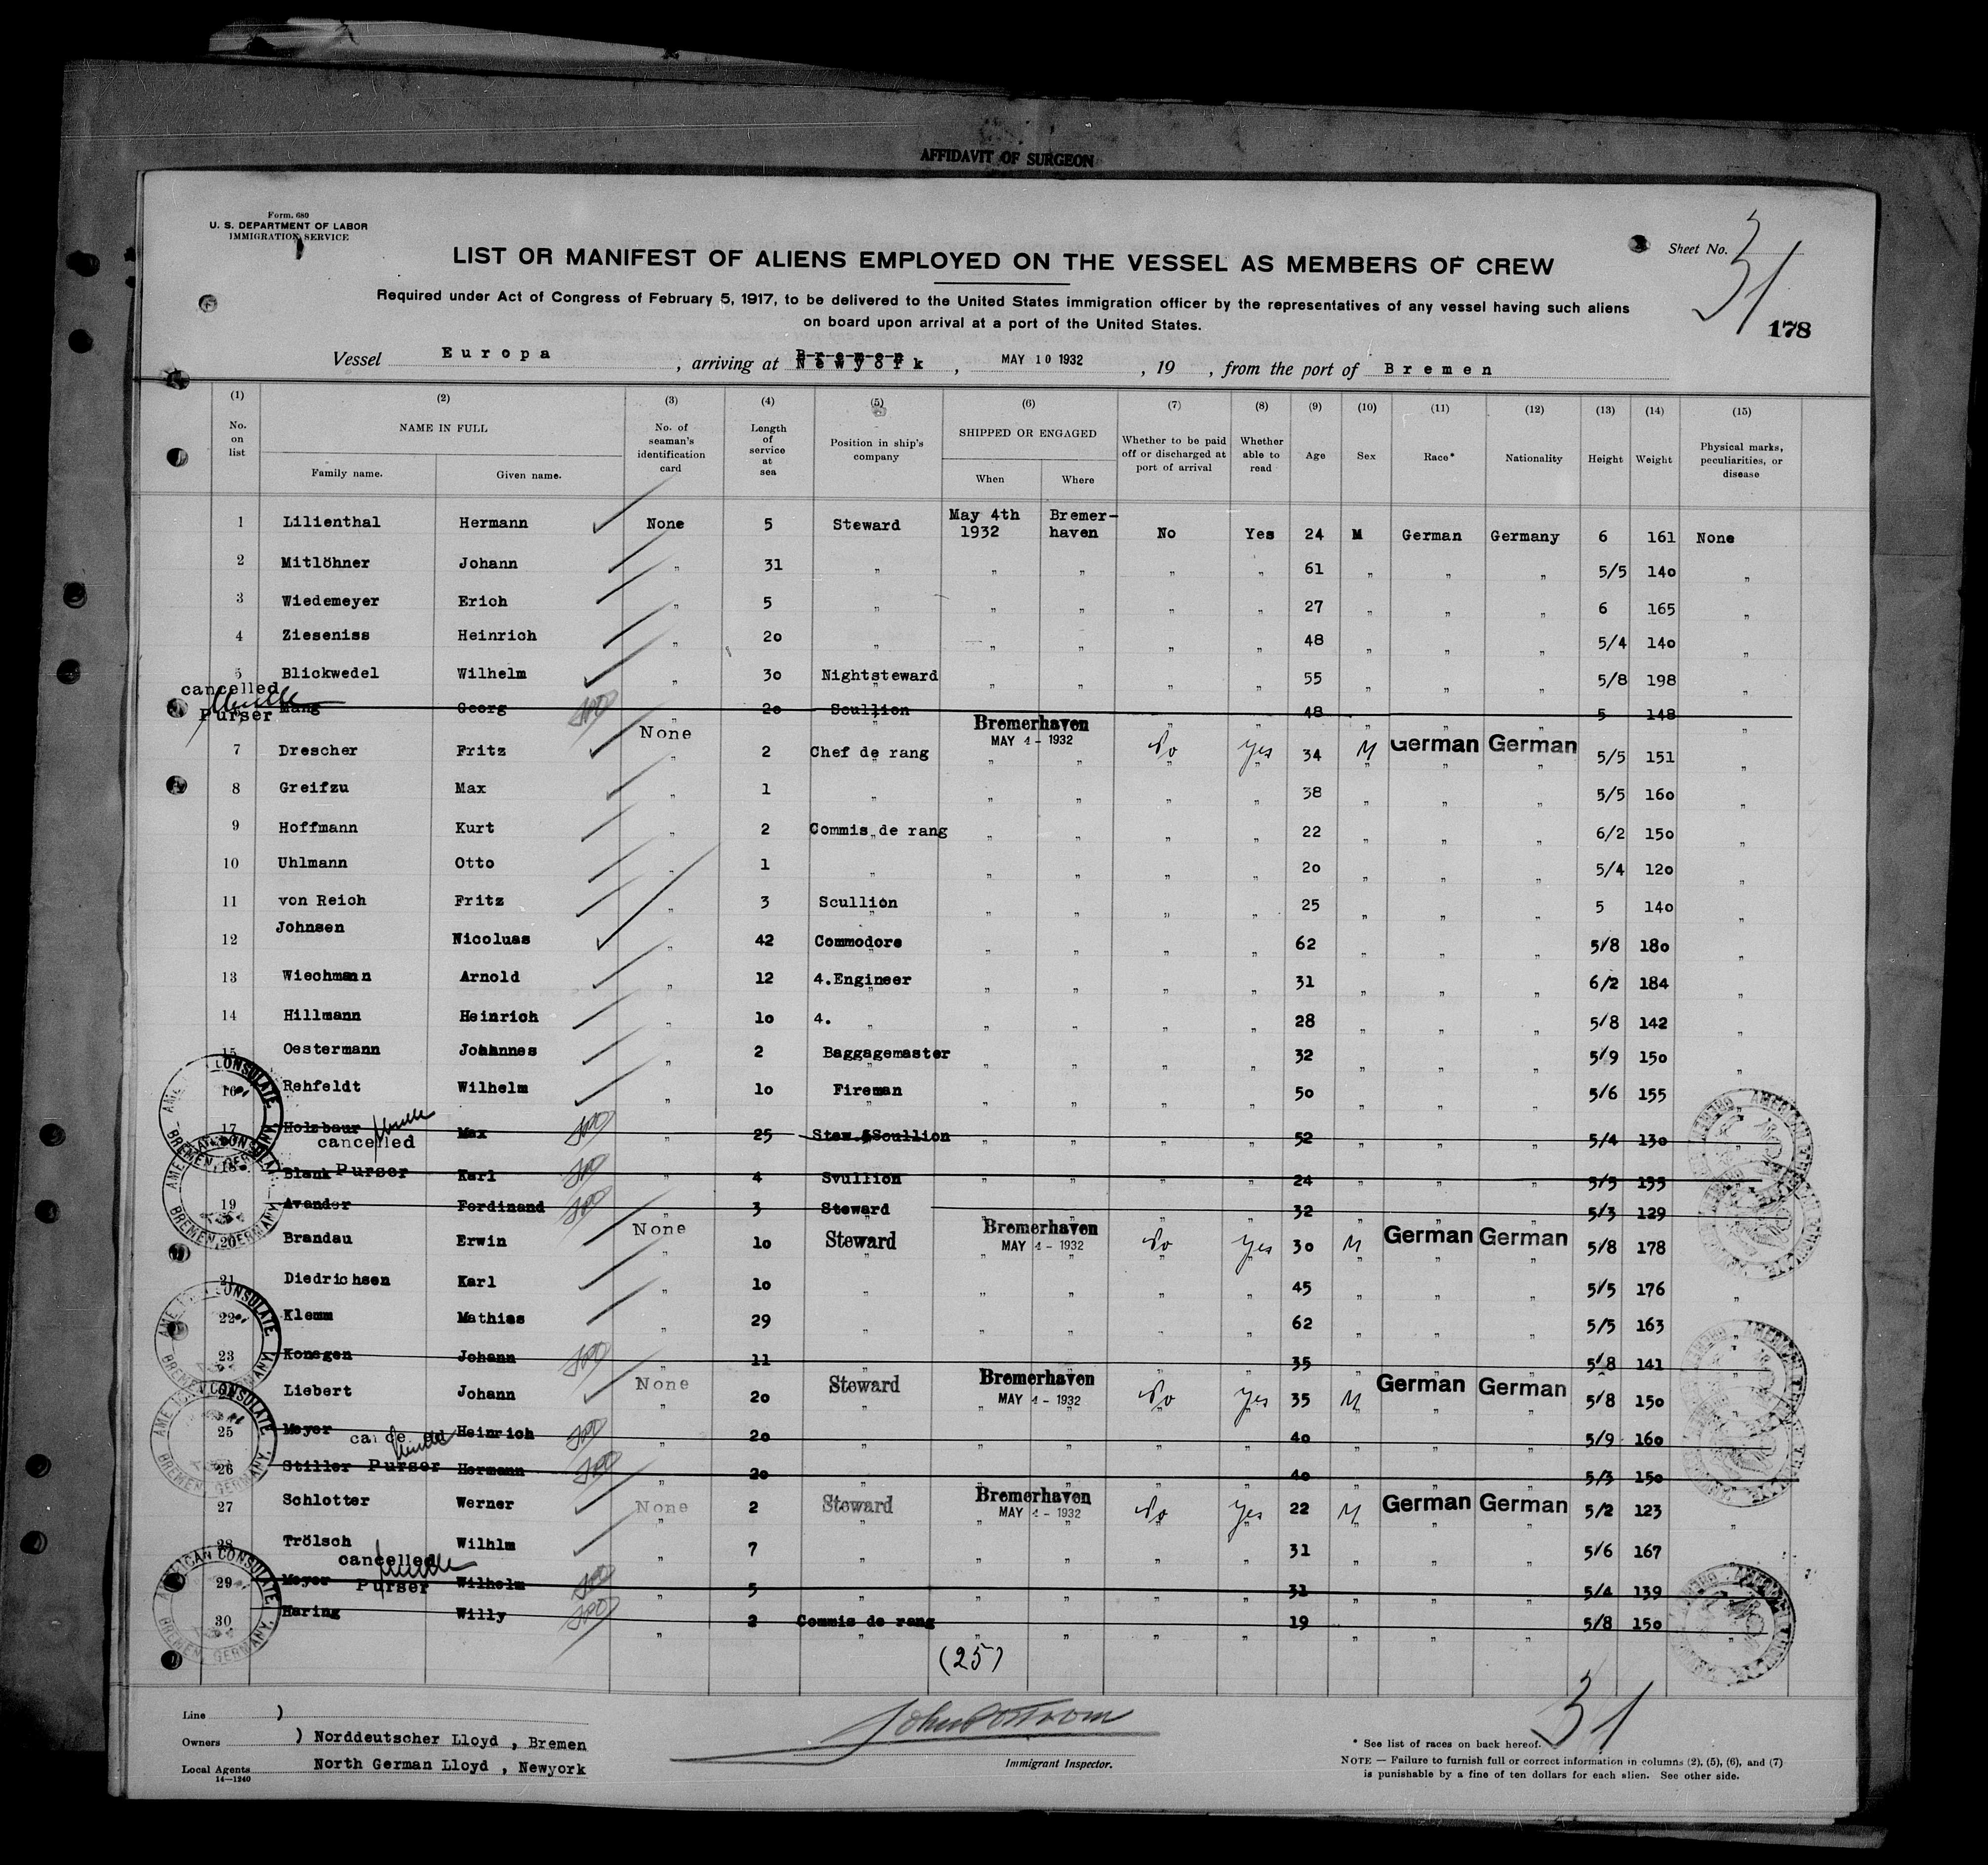 AFFIDAVIT OF SURGEON
Form. 680
U. S. DEPARTMENT OF LABOR
IMMIGRATION SERVICE
Sheet No. 31
LIST OR MANIFEST OF ALIENS EMPLOYED ON THE VESSEL AS MEMBERS OF CREW
Required under Act of Congress of February 5, 1917, to be delivered to the United States immigration officer by the representatives of any vessel having such aliens
on board upon arrival at a port of the United States.
178
Vessel Europa, arriving at Bremen Newyork, MAY 10 1932, 19 , from the port of Bremen
(1) (2) (3) (4) (5) (6) (7) (8) (9) (10) (11) (12) (13) (14) (15)
No. on list NAME IN FULL Family name. Given name. No. of seaman's identification card Length of service at sea Position in ship's company SHIPPED OR ENGAGED When Where Whether to be paid off or discharged at port of arrival Whether able to read Age Sex Race* Nationality Height Weight Physical marks, peculiarities, or disease
1 Lilienthal Hermann None 5 Steward May 4th 1932 Bremer-haven No Yes 24 M German Germany 6 161 None
2 Mitlöhner Johann " 31 " " " " " 61 " " " 5/5 140 "
3 Wiedemeyer Erich " 5 " " " " " 27 " " " 6 165 "
4 Zieseniss Heinrich " 20 " " " " " 48 " " " 5/4 140 "
5 Blickwedel Wilhelm " 30 Nightsteward " " " " 55 " " " 5/8 198 "
cancelled
Purser
Mang Georg " 20 Scullion " " " " 48 " " " 5 148 "
None Bremerhaven MAY 4 - 1932
7 Drescher Fritz " 2 Chef de rang " " No Yes 34 M German German 5/5 151 "
8 Greifzu Max " 1 " " " " " 38 " " " 5/5 160 "
9 Hoffmann Kurt " 2 Commis de rang " " " " 22 " " " 6/2 150 "
10 Uhlmann Otto " 1 " " " " " 20 " " " 5/4 120 "
11 von Reich Fritz " 3 Scullion " " " " 25 " " " 5 140 "
12 Johnsen Nicoluas " 42 Commodore " " " " 62 " " " 5/8 180 "
13 Wiechmann Arnold " 12 4.Engineer " " " " 31 " " " 6/2 184 "
14 Hillmann Heinrich " 10 4. " " " " " 28 " " " 5/8 142 "
15 Oestermann Johannes " 2 Baggagemaster " " " " 32 " " " 5/9 150 "
16 Rehfeldt Wilhelm " 10 Fireman " " " " 50 " " " 5/6 155 "
17 Holzbaur Max " 25 Stew.&Scullion " " " " 52 " " " 5/4 130
cancelled
Purser
18 Blank Karl " 4 Svullion " " " " 24 " " " 5/5 135
19 Avander Ferdinand " 3 Steward " " " " 32 " " " 5/3 129
None Bremerhaven MAY 4 - 1932
20 Brandau Erwin " 10 Steward " " No Yes 30 M German German 5/8 178
21 Diedrichsen Karl " 10 " " " " " 45 " " " 5/5 176 "
22 Klemm Mathias " 29 " " " " " 62 " " " 5/5 163
23 Konsgen Johann " 11 " " " " " 35 " " " 5/8 141
None Bremerhaven MAY 4 - 1932
Liebert Johann " 20 Steward " " No Yes 35 M German German 5/8 150
25 Meyer Heinrich " 20 " " " " " 40 " " " 5/9 160
Purser
26 Stiller Hermann " 20 " " " " " 40 " " " 5/3 150
Bremerhaven MAY 4 - 1932
27 Schlotter Werner None 2 Steward " " No Yes 22 M German German 5/2 123 "
28 Trölsch Wilhlm " 7 " " " " " 31 " " " 5/6 167
cancelled
Purser
29 Meyer Wilhelm " 5 " " " " " 31 " " " 5/4 139
30 Haring Willy " 2 Commis de rang " " " " 19 " " " 5/8 150
(25)
AMERICAN CONSULATE
BREMEN, GERMANY.
Line )
Owners ) Norddeutscher Lloyd , Bremen
Local Agents North German Lloyd , Newyork
14—1240
Immigrant Inspector.
31
* See list of races on back hereof.
NOTE — Failure to furnish full or correct information in columns (2), (5), (6), and (7)
is punishable by a fine of ten dollars for each alien. See other side.